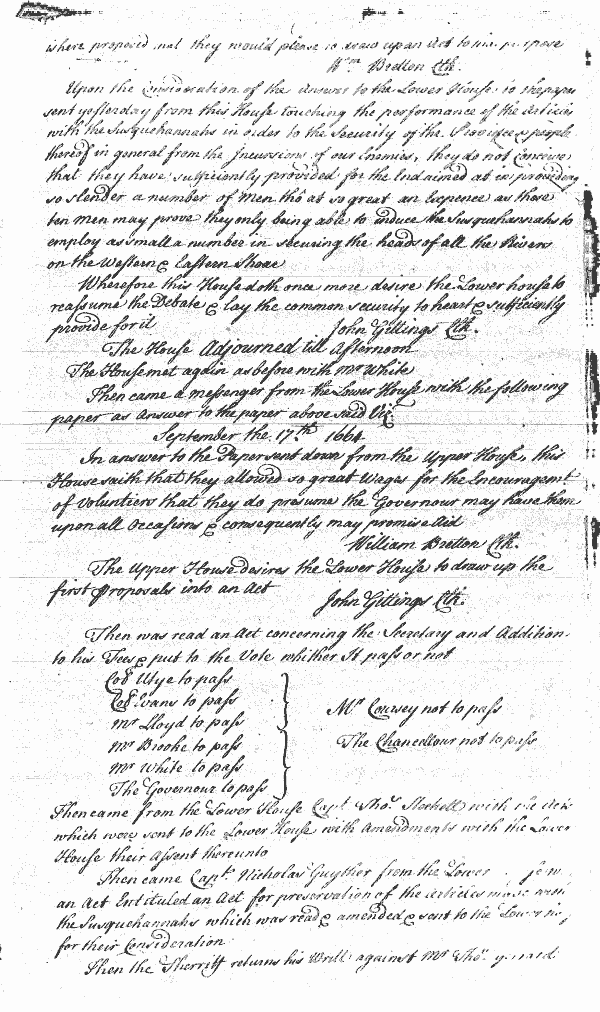 where proposed and they would please to draw upan Act to his purpose
Wm Bretton Clk.
Upon the Consideration of the Answer to the Lower House to the paper
sent yesterday from this House touching the performance of the Articles
with the Susquehannahs in order to the Security of the Province & people
thereof in general from the Incursions of our Enemies, they do not Conceive
that they have sufficiently provided for the End aimed at in providing
so slender a number of Men tho' at so great an Expence as those
ten Men may prove they only being able to induce the Susquehannahs to
employ as small a number in securing the heads of all the Rivers
on the Western & Eastern Shoar
Wherefore this House doth once more desire the Lower house to
reassume the Debate & lay the common security to heart & sufficiently
provide for it
John Gittings Clk.
The House Adjourned till Afternoon
The House met again as before with Mr White
Then came a messenger from the Lower House with the following
paper as Answer to the paper above said Vizt
September the 17.th 1664
In answer to the Paper sent down from the Upper House, this
House saith that they allowed so great Wages for the Encouragemt
of Voluntiers that they do presume the Governour may have them
upon all Occasions & consequently may promise Aid
William Bretton Clk.
The Upper House desires the Lower House to draw up the
first Proposals into an Act
John Gittings Clk.
Then was read an Act concerning the Secretary and Addition
to his Fees & put to the Vote whither It pass or not
Coll Utye to pass
Coll Evans to pass
Mr Lloyd to pass
Mr Brooke to pass
Mr White to pass
The Governour to pass
Mr Coursey not to pass
The Chancellour not to pass
Then came from the Lower House Capt Tho.s with the Acts
which were sent to the Lower House with Amendments with the Lower
House their Assent thereunto
Then came Capt Nicholas Guyther from the Lower
an Act Entituled an Act for preservation of the Articles made with
the Susquehannahs which was read & amended & sent to the Lower
for their Consideration
Then the Sherriff returns his Writt against Mr Tho.s